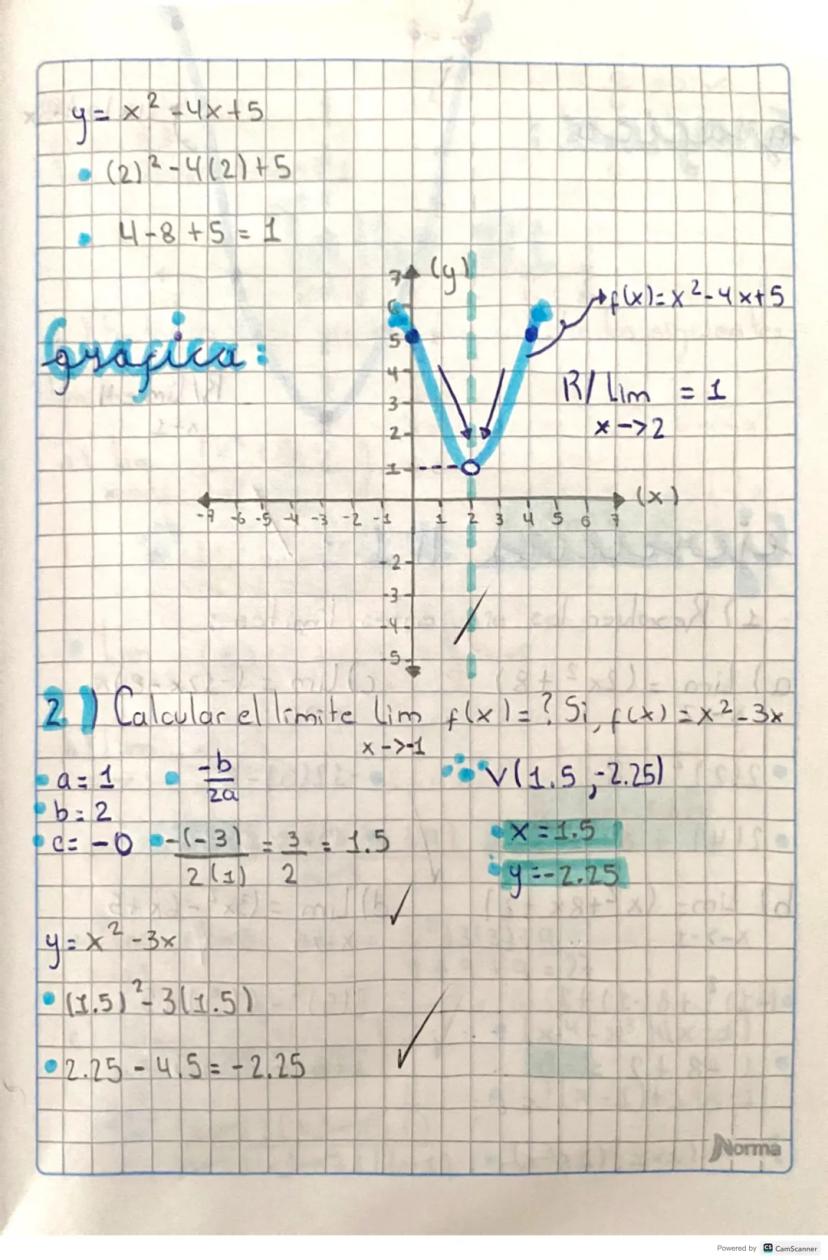 y = x² - 4x + 5
• (2)² - 4(2) + 5
• 4 - 8 + 5 = 1
Grafica:
(y)
7
6
5
4
3
2
1
-2
-3
-4
-5
-7 -6 -5 -4 -3 -2 -1 1 2 3 4 5 6 7 (x)
f(x) = x² - 4x + 5
R/ Lim = 1
x -> 2
2.) Calcular el limite Lim f(x) = ? Si, f(x) = x² - 3x
x -> -1
• a = 1 • -b/2a V(1.5, -2.25)
• b = 2
• c = -0 • -(-3)/2(1) = 3/2 = 1.5 • x = 1.5
• y = -2.25
y = x² - 3x
• (1.5)² - 3(1.5)
• 2.25 - 4.5 = -2.25
Norma
Powered by CS CamScanner